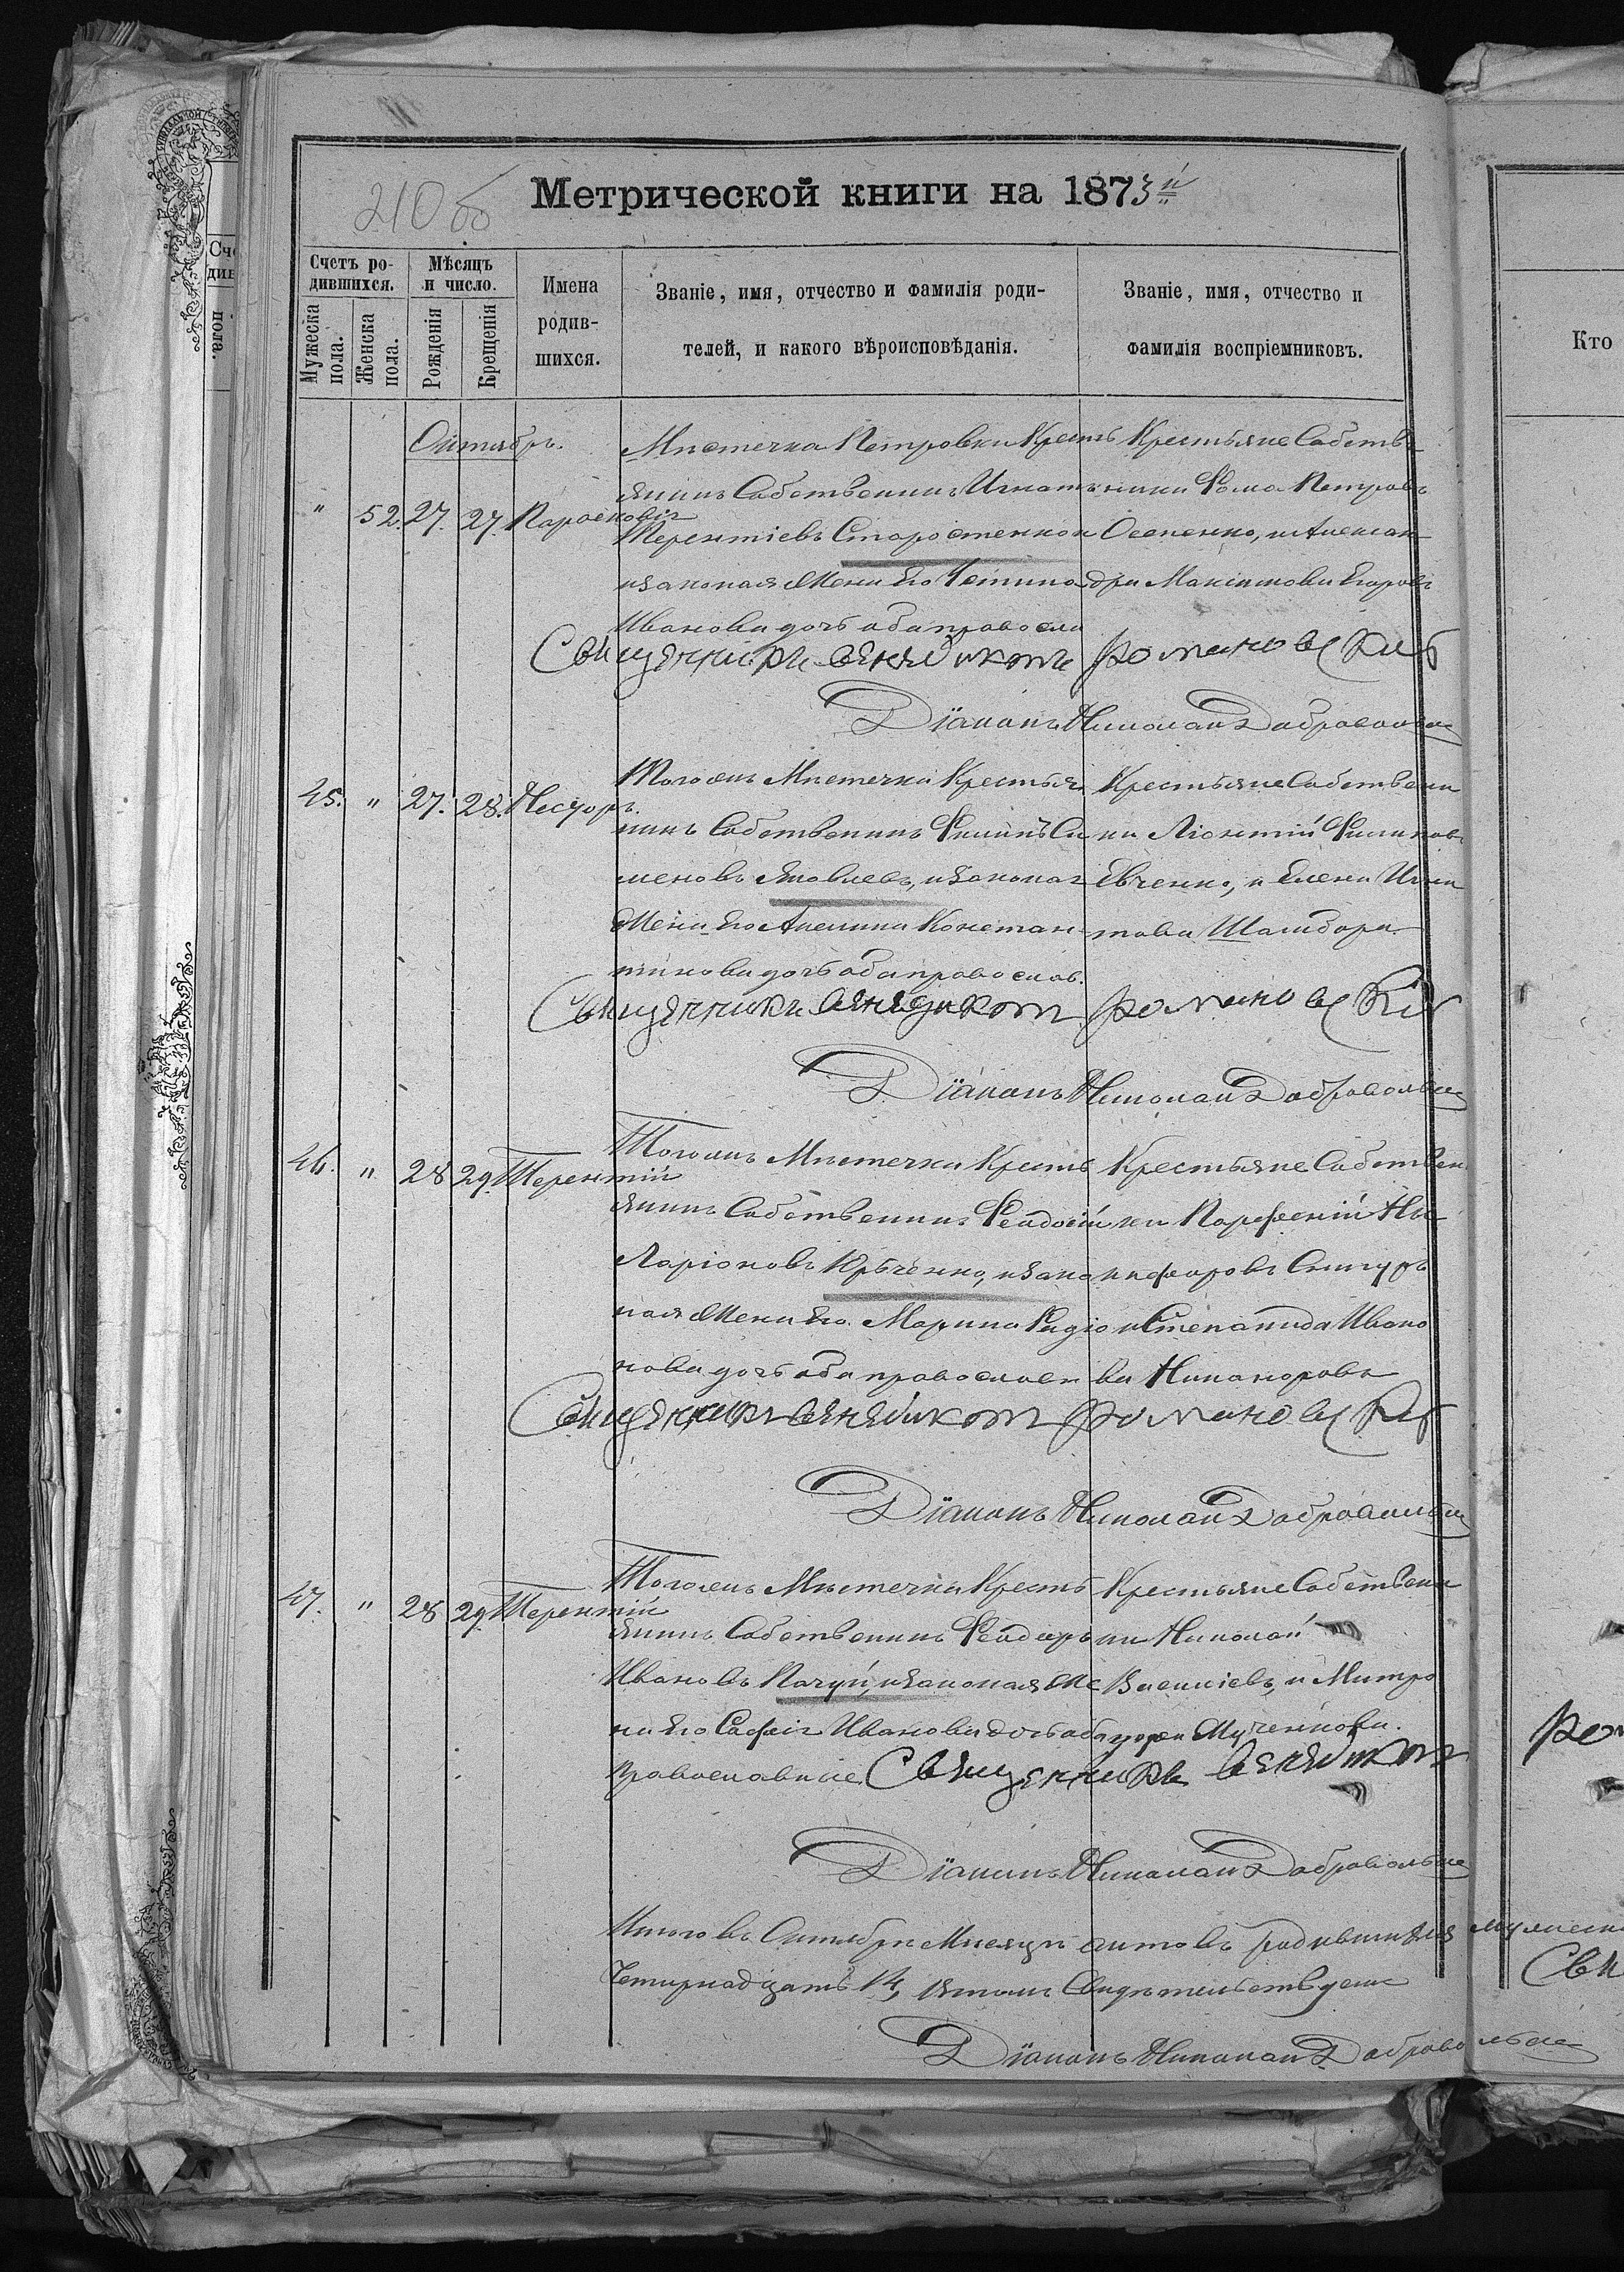 210 об
Метрической книги на 1873й
Счетъ родившихся.
Мѣсяцъ и число.
Имена родившихся.
Званіе, имя, отчество и фамилія родителей, и какого вѣроисповѣданія.
Званіе, имя, отчество и фамилія воспріемниковъ.
Мужеска пола.
Женска пола.
Рожденія
Крещенія
Октябрь.
" 52. 27. 27. Парасковія
Мѣстечка Петровки Кресть
янинъ Собственникъ Игнатъ
Терентіевъ Старостенко и
и законая Жена его Устина
Иванова дочь оба правосла
Крестьяне Собствен
ники Фома Петровъ
Осепенко, и Алексан
дра Максимова Егоровъ
Священникъ Венедиктъ Романовскій
Діаконъ Николай Добровольск
45. " 27. 28. Несторъ
Тогожъ Мѣстечка Крестья
нинъ Собственникъ Филипъ Си
меновъ Яковлевъ, и законая
Жена его Акелина Констан
тинова дочь оба православ.
Крестьяне Собственн
ки Ліонтій Филипов
Евченко, и Елена Игна
това Шамбора
Священникъ Венедиктъ Романовскій
Діаконъ Николай Добровольск
46. " 28 29. Терентій
Тогожъ Мѣстечка Кресть
янинъ Собственникъ Феодосій
Ларіоновъ Кравченко, и зако
ная Жена его Марина Радіо
нова дочь оба православн
Крестьяне Собствен
ки Парфеній Ни
кифоровъ Снигуръ
и Степанида Ивано
ва Никанорова
Священникъ Венедиктъ Романовскій
Діаконъ Николай Добровольск
47. " 28 29. Терентій
Тогожъ Мѣстечка Кресть
янинъ Собственникъ Феодоръ
Ивановъ Пачуй, и законая Же
на его Софія Иванова дочь оба
Православные
Крестьяне Собственн
ки Николай
Василіевъ, и Митро
дора Мученикова.
Священникъ Венедиктъ
Діаконъ Николай Добровольск
Итого въ Октябрѣ Мѣсяцѣ актовъ родившихся
Четырнадцать 14, в томъ Свидѣтельствуемъ
Діаконъ Николай Добровольск
Кто